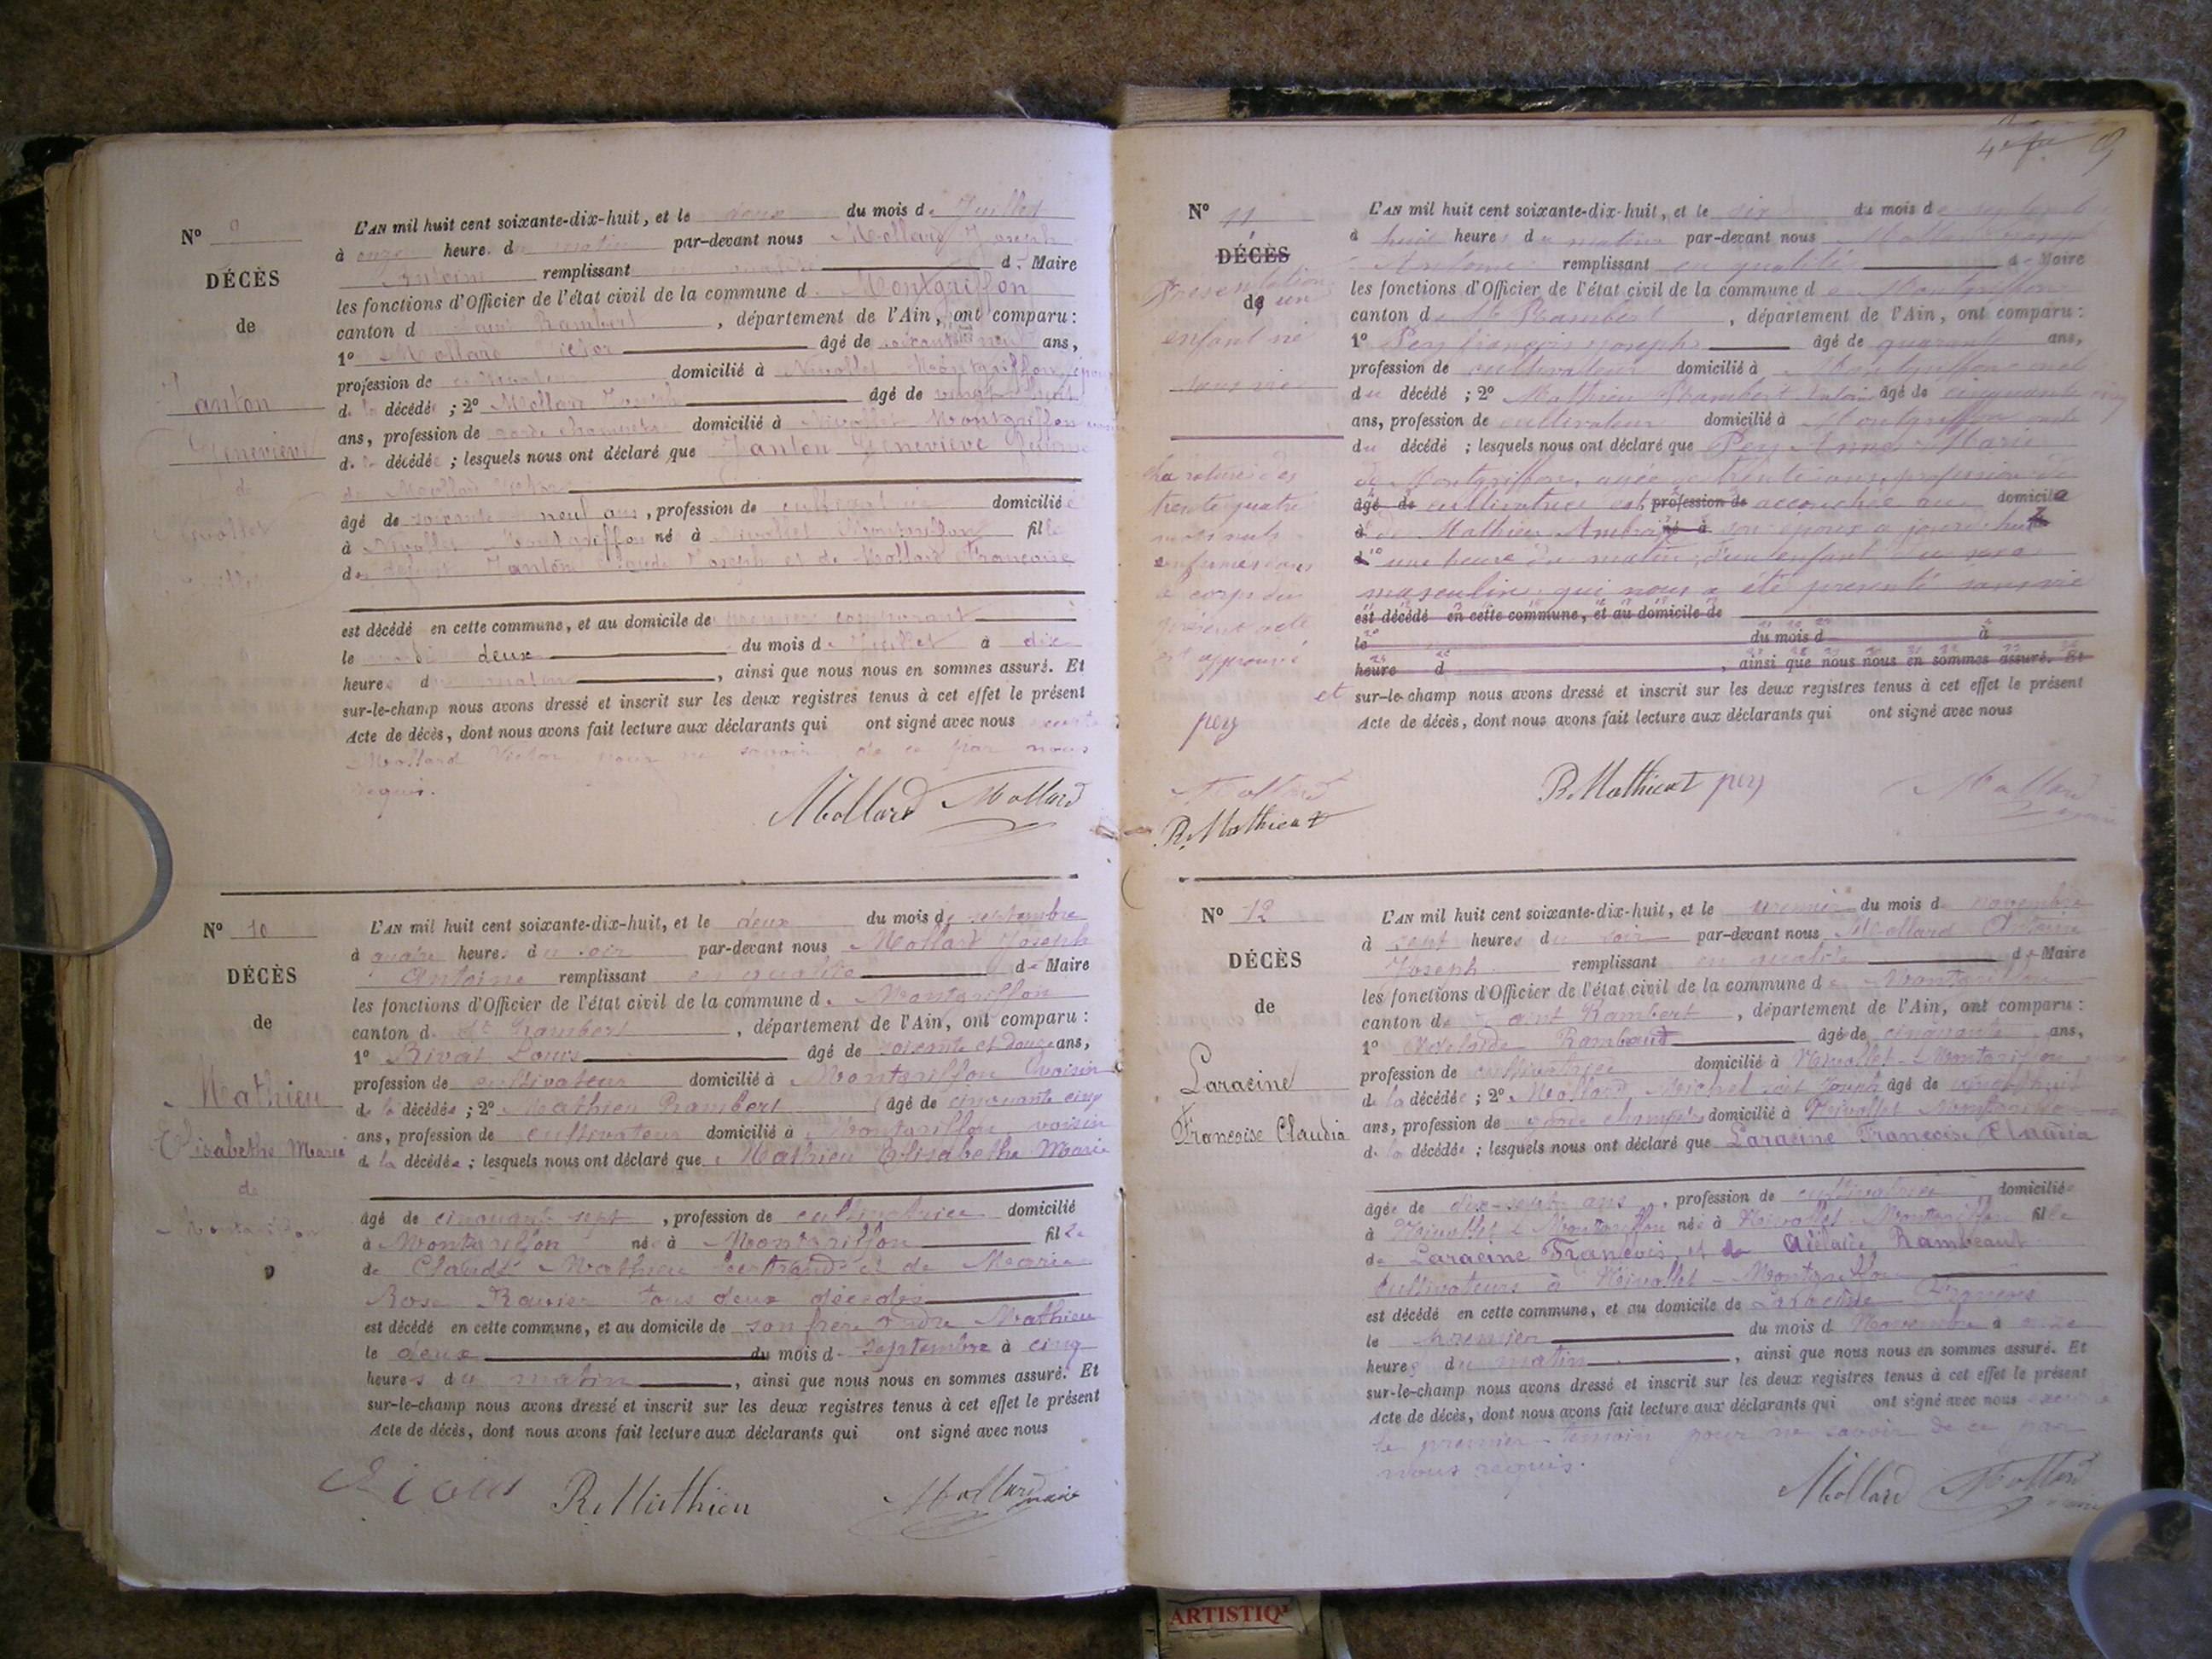 N° 9
DÉCÈS
de
Janton
Geneviève
de
L'AN mil huit cent soixante-dix-huit, et le deux du mois de Juillet
à onze heure du matin par-devant nous Mollard Joseph
Antoine remplissant en qualité de Maire
les fonctions d'Officier de l'état civil de la commune de Montgriffon
canton de Saint Rambert, département de l'Ain, ont comparu :
1° Mollard Victor âgé de soixante neuf ans,
profession de cultivateur domicilié à Nivollet Montgriffon, époux
de la décédée ; 2° Mollard Joseph âgé de vingt huit
ans, profession de garde champêtre domicilié à Nivollet Montgriffon
de la décédée ; lesquels nous ont déclaré que Janton Geneviève
de Mollard Victor
âgé de soixante neuf ans, profession de cultivatrice domicilié
à Nivollet Montgriffon né à Nivollet Montgriffon fille
de Janton Claude Joseph et de Mollard Françoise
est décédé en cette commune, et au domicile de premier comparant
le deux du mois de Juillet à dix
heures du matin, ainsi que nous nous en sommes assuré. Et
sur-le-champ nous avons dressé et inscrit sur les deux registres tenus à cet effet le présent
Acte de décès, dont nous avons fait lecture aux déclarants qui ont signé avec nous
Mollard Victor pour ne savoir de ce par nous
requis.
Mollard Mollard
N° 10
DÉCÈS
de
Mathieu
Elisabethe Marie
de
Montgriffon
L'AN mil huit cent soixante-dix-huit, et le deux du mois de septembre
à quatre heure. du soir par-devant nous Mollard Joseph
Antoine remplissant en qualité de Maire
les fonctions d'Officier de l'état civil de la commune de Montgriffon
canton de St Rambert, département de l'Ain, ont comparu :
1° Rivat Louis âgé de soixante et douze ans,
profession de cultivateur domicilié à Montgriffon voisin
de la décédée ; 2° Mathieu Rambert âgé de cinquante cinq
ans, profession de cultivateur domicilié à Montgriffon, voisin
de la décédée ; lesquels nous ont déclaré que Mathieu Elisabethe Marie
âgé de cinquante sept, profession de cultivatrice domicilié
à Montgriffon né à Montgriffon fille
de Claude Mathieu et de Marie
Rose Ravier tous deux décédés
est décédé en cette commune, et au domicile de son frère Mathieu
le deux du mois de septembre à cinq
heures du matin, ainsi que nous nous en sommes assuré. Et
sur-le-champ nous avons dressé et inscrit sur les deux registres tenus à cet effet le présent
Acte de décès, dont nous avons fait lecture aux déclarants qui ont signé avec nous
R. Mathieu Mollard maire
9
N° 11
DÉCÈS
Présentation
de un
enfant né
sans vie
trente quatre
mots nuls
le corps du
présent acte
est approuvé
pey
Mollard
R. Mathieu
L'AN mil huit cent soixante-dix-huit, et le six du mois de septembre
à huit heures du matin par-devant nous Mollard Joseph
Antoine remplissant en qualité de Maire
les fonctions d'Officier de l'état civil de la commune de Montgriffon
canton de St Rambert, département de l'Ain, ont comparu :
1° Pey François Joseph âgé de quarante ans,
profession de cultivateur domicilié à Montgriffon
du décédé ; 2° Mathieu Rambert Antoine âgé de cinquante cinq
ans, profession de cultivateur domicilié à Montgriffon
du décédé ; lesquels nous ont déclaré que Pey Anne Marie
de Montgriffon, âgée de trente ans, profession de
âgé de cultivatrice est profession de accouchée au domicile
de Mathieu son époux aujourd'hui
à une heure du matin, d'un enfant du sexe
masculin qui nous a été présenté sans vie
est décédé en cette commune, et au domicile de
le du mois d à
heure d , ainsi que nous nous en sommes assuré. Et
et sur-le-champ nous avons dressé et inscrit sur les deux registres tenus à cet effet le présent
Acte de décès, dont nous avons fait lecture aux déclarants qui ont signé avec nous
R. Mathieu pey Mollard
N° 12
DÉCÈS
de
Laracine
Françoise Claudia
L'AN mil huit cent soixante-dix-huit, et le premier du mois de novembre
à sept heures du soir par-devant nous Mollard Antoine
Joseph remplissant en qualité de Maire
les fonctions d'Officier de l'état civil de la commune de Montgriffon
canton de Saint Rambert, département de l'Ain, ont comparu :
1° Adélaïde Rambaud âgé de cinquante ans,
profession de cultivatrice domicilié à Nivollet - Montgriffon
de la décédée ; 2° Mollard Michel Joseph âgé de vingt huit
ans, profession de garde champêtre domicilié à Nivollet Montgriffon
de la décédée ; lesquels nous ont déclaré que Laracine Françoise Claudia
âgée de dix-sept ans, profession de cultivatrice domiciliée
à Nivollet Montgriffon née à Nivollet Montgriffon fille
de Laracine François et de Adélaïde Rambeaut
cultivateurs à Nivollet - Montgriffon
est décédé en cette commune, et au domicile de Laracine François
le premier du mois de Novembre à onze
heures du matin, ainsi que nous nous en sommes assuré. Et
sur-le-champ nous avons dressé et inscrit sur les deux registres tenus à cet effet le présent
Acte de décès, dont nous avons fait lecture aux déclarants qui ont signé avec nous
le premier témoin pour ne savoir de ce par
nous requis.
Mollard Mollard
ARTISTIQ